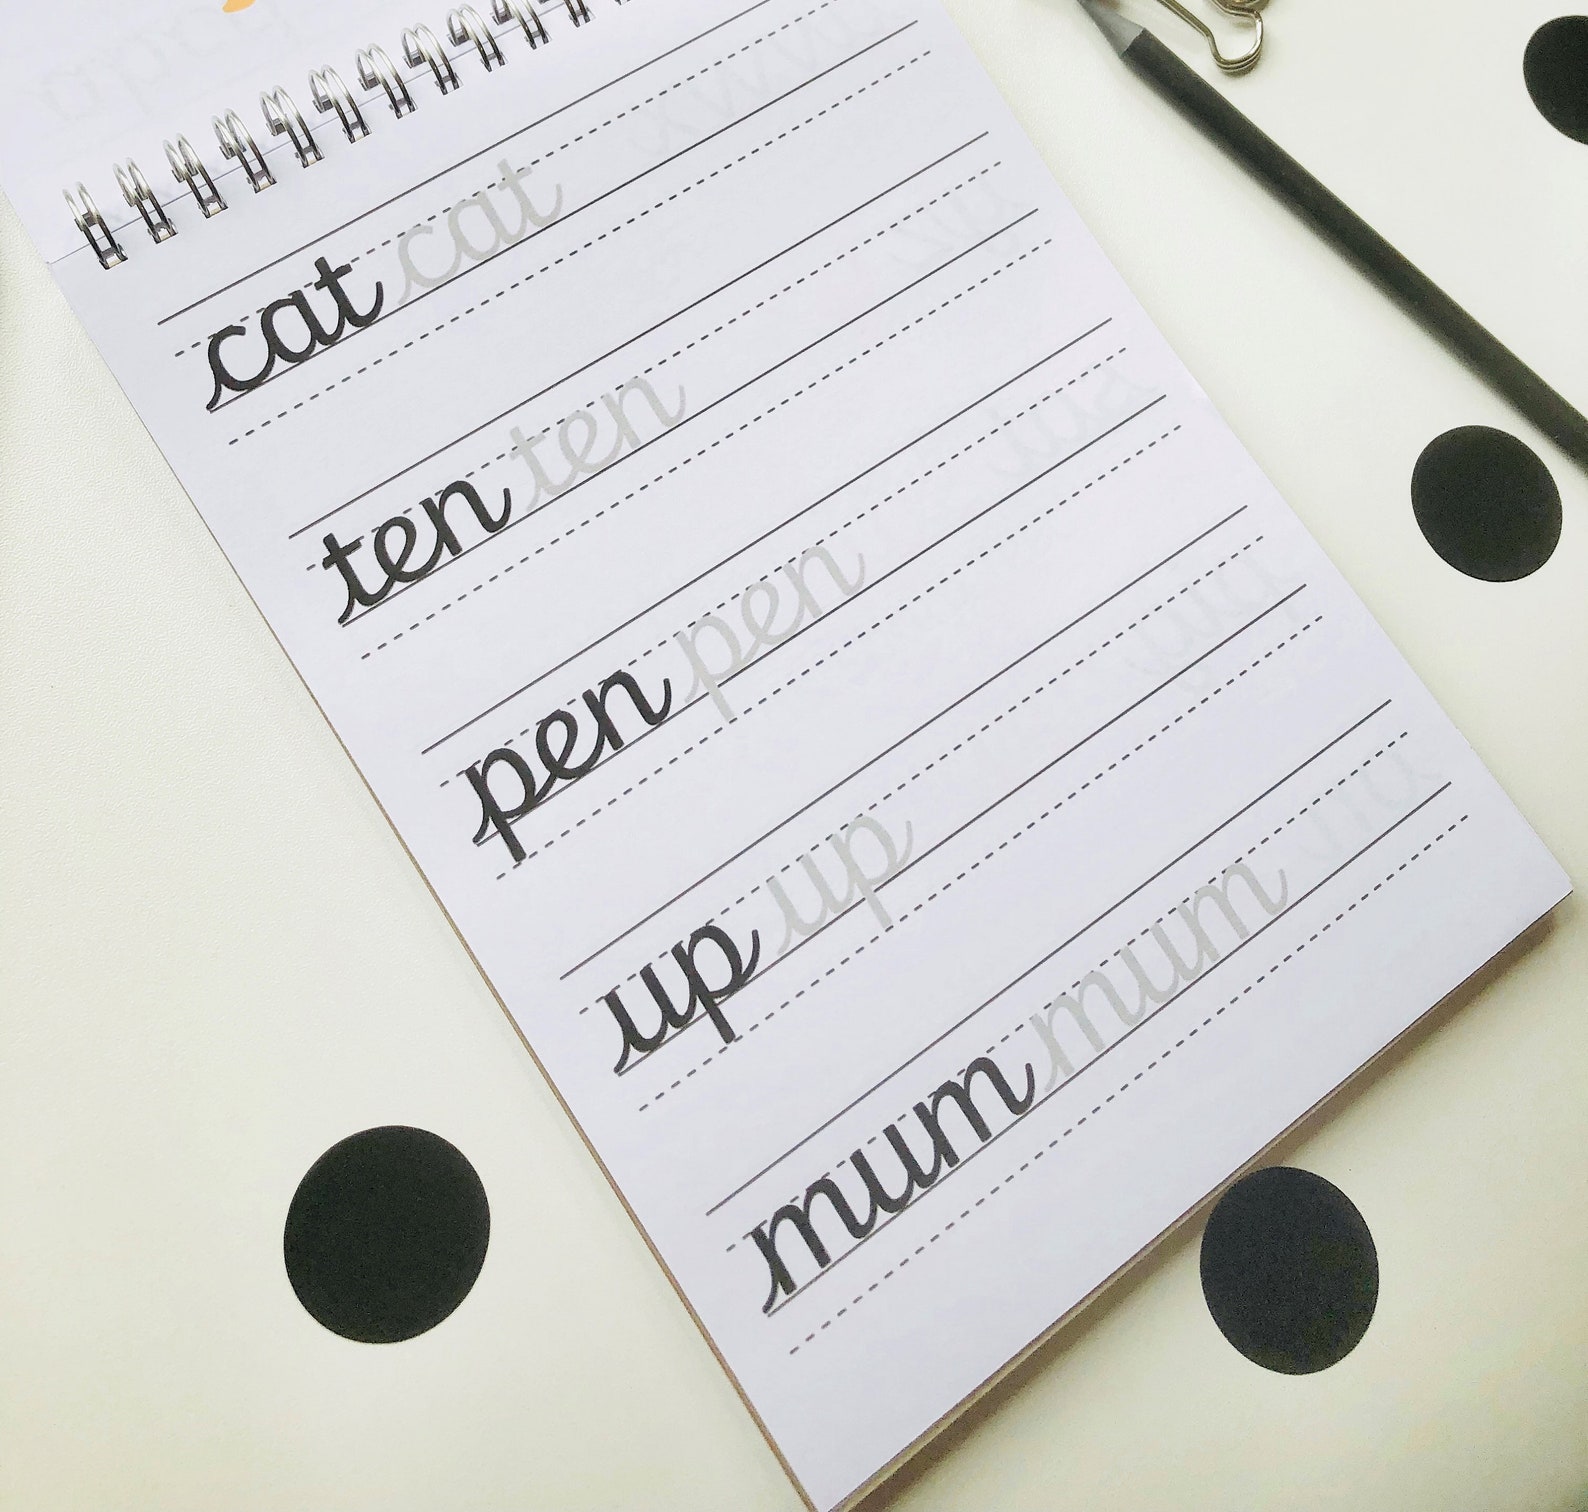 cat cat
ten ten
pen pen
up up
mum mum